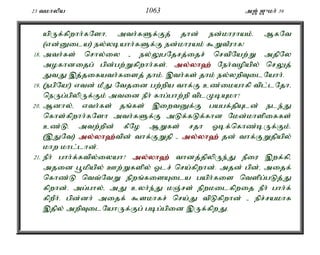 23 வமாலிய 1063 அஜ் ஜுமர் 39
யிருக்கிறார்களோ, அவர்களுக்குத் தான் நன்மாராயம். ஆகவே
(என்னுடைய) நல்லடியார்களுக்கு நன்மாராயம் கூறுவீராக!
18. அவர்கள் சொல்லை - நல்லுபதேசத்தைச் செவியேற்று அதிலே
அழகானதைப் பின்பற்றுகிறார்கள். அல்லாஹ் நேர்வழியில் செலுத்
துவது இத்தகையவர்களைத் தாம். இவர்கள் தாம் நல்லறிவுடையோர்.
19. (நபியே!) எவன் மீது வேதனை பற்றிய வாக்கு உண்மையாகி விட்டதோ,
நெருப்பிலிருக்கும் அவனை நீர் காப்பாற்றி விடமுடியுமா?
20. ஆனால், எவர்கள் தங்கள் இறைவனுக்கு பயபக்தியுடன் நடந்து
கொள்கிறார்களோ அவர்களுக்கு அடுக்கடுக்கான மேன்மாளிகைகள்
உண்டு. அவற்றின் கீழே ஆறுகள் சதா ஓடிக்கொண்டிருக்கும்.
(இதுவே) அல்லாஹ்வின் வாக்குறுதி - அல்லாஹ் தன் வாக்குறுதியில்
மாற மாட்டான்.
21. நீர் பார்க்கவில்லையா? அல்லாஹ் வானத்திலிருந்து நீரை இறக்கி,
அதனை பூமியில் ஊற்றுகளில் ஓடச் செய்கிறான். அதன் பின், அதைக்
கொண்டு வெவ்வேறு நிறங்களையுடைய பயிர்களை வெளிப்படுத்து
கிறான். அப்பால், அது உலர்ந்து மஞ்சள் நிறமடைகிறதை நீர் பார்க்
கிறீர். பின்னர் அதைக் கூளமாகச் செய்து விடுகிறான் - நிச்சயமாக
இதில் அறிவுடையோருக்குப் படிப்பினை இருக்கிறது.